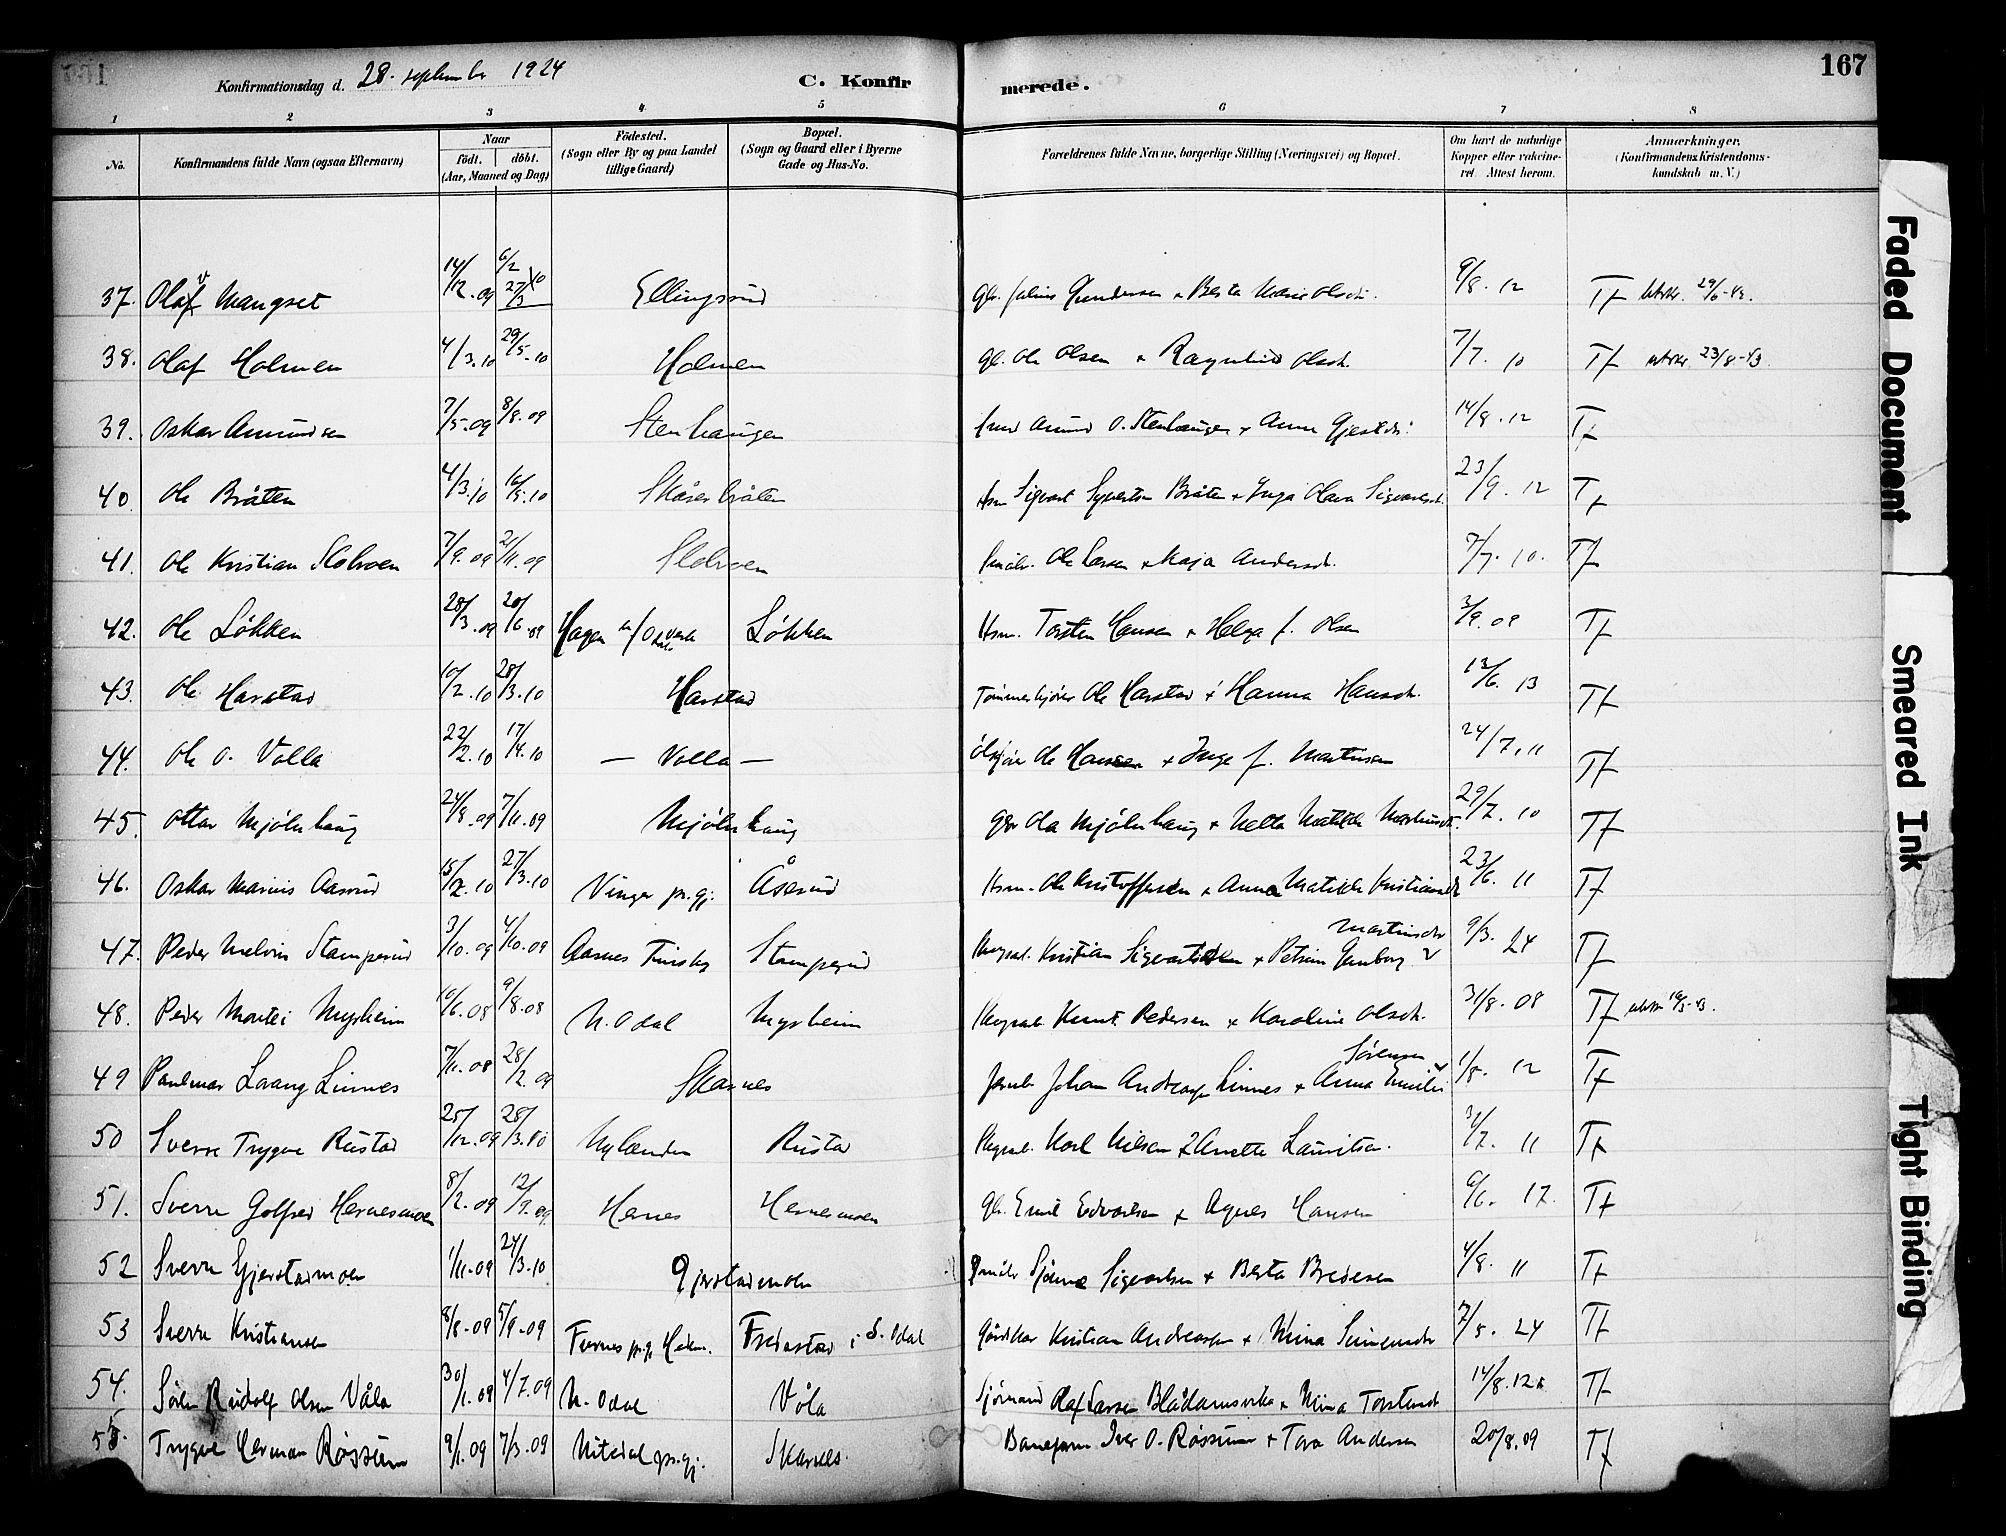 167
Konfirmationsdag d. 28. september 1924 C. Konfirmerede.
1 2 3 4 5 6 7 8
No. Konfirmandens fulde Navn (ogsaa Efternavn) Naar födt. döbt. (Aar, Maaned og Dag) Födested. (Sogn eller By og paa Landet tillige Gaard) Bopæl. (Sogn og Gaard eller i Byerne Gade og Hus-No. Forældrenes fulde Navne, borgerlige Stilling (Næringsvei) og Bopæl. Om havt de naturlige Kopper eller vakcineret. Attest herom. Anmærkninger. (Konfirmandens Kristendomskundskab m. V.)
37. Olaf Mangset 14/12.09 6/2 27/3 10 Ellingsrud Gbr. Julius Gundersen + Berta Marie Olsdr. 9/8.12 Tf utskr. 29/6-43.
38. Olaf Holmen 4/3.10 29/5.10 Holmen Gbr. Ole Olsen + Ragnhild Olsdt. 7/7. 10 Tf utskr. 23/8-43.
39. Oskar Amundsen 7/5.09 8/8.09 Stenhaugen Amund O. Stenhaugen + Anne 14/8.12 Tf
40. Ole Bråten 4/3.10 16/5.10 Skåresbråten Hsm Sigvart Syvertsen Bråten + Inga Olava 23/9.12 Tf
41. Ole Kristian Slobroen 7/9.09 21/11.09 Slobroen Ole Larsen + Maja Andersdt. 7/7. 10. Tf
42. Ole Løkken 28/3.09 20/6.09 Hagen Løkken Hsm. Torsten Hansen + Helga f. Olsen 3/9.09 Tf
43. Ole Harstad 10/2.10 28/3.10 Harstad Tømmerkjører Ole Harstad + Hanna Hansdt. 13/6. 13 Tf
44. Ole O. Volla 22/2.10 17/4.10 — Volla — Ole Hansen + Inga f. Martinsen 24/7.11 Tf
45. Ottar Mjølnhaug 24/8.09 7/11.09 Mjølnhaug Gbr Ola Mjølnhaug + Netta Matilde 29/7. 10 Tf
46. Oskar Marius Aasrud 15/2.10 27/3.10 Vinger pr.gj. Åserud Hsm. Ole Kristoffersen + Anna Matilde Kristiansdt 23/6. 11 Tf
47. Peder Melvin Stamperud 3/10.09 4/10.09 Aasnes Finskg Stamperud Kristian Sigvartsen + Petrine Martinsdr 9/3. 24 Tf
48. Peder Myrheim 16/6.08 9/8.08 N. Odal Myrheim Knut Pedersen + Karoline Olsdt. 31/8.08 Tf
49 Paulmar Lvang Linnes 7/11.08 28/2.09 Skarnes Johan Andreas Linnes + Anna Emilie Sørensen 1/8. 12 Tf
50 Sverre Trygve Rustad 25/12.09 28/3.10 Nylænden Rustad Karl Nilsen & Anette Lauritsen. 31/7. 11 Tf
51. Sverre Golfred Hernesmoen 8/2.09 12/9.09 Hernes Hernesmoen Gbr. Emil Edvardsen + Agnes Hansen 6/6. 17. Tf
52 Sverre Gjerstadmoen 1/11.09 24/3.10 Gjerstadmoen Sigvartsen + Berta Bredesen 4/8. 11 Tf
53 Sverre Kristiansen 8/8.09 5/9.09 Furnes pr.gj. Hedm. Fredastad i S. Odal Kristian Andreassen + Mina Simensdr 7/5. 24 Tf
54. Søren Rudolf Olsen Våla 30/1.09 4/7.09 N. Odal Våla Sjømand Olaf Larsen Blådamsvika + Mina Torstensdt 14/8.12 Tf
55. Trygve Herman Røssum 9/1.09 7/3.09 Nitedal pr.gj. Skarnes Iver O. Røssum + Tora Andersen 20/8.09 Tf
Faded Document
Smeared Ink
Tight Binding